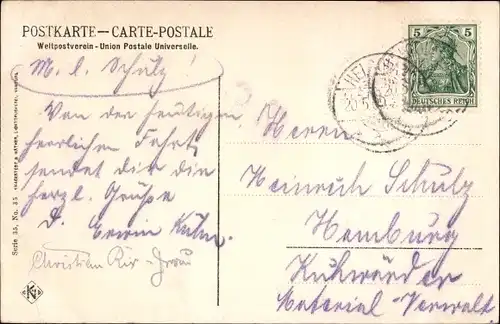 POSTKARTE—CARTE-POSTALE
Weltpostverein - Union Postale Universelle.
5 5
DEUTSCHES REICH
M. l. Schulz!
Von der heutigen
herrlichen Fahrt
sendet dir die
herzl. Grüße
D. Erwin Kühn.
Christian
Herrn
Heinrich Schulz
Hamburg
Kuhwärder
Material-Verwalt.
Serie 33, No. 35